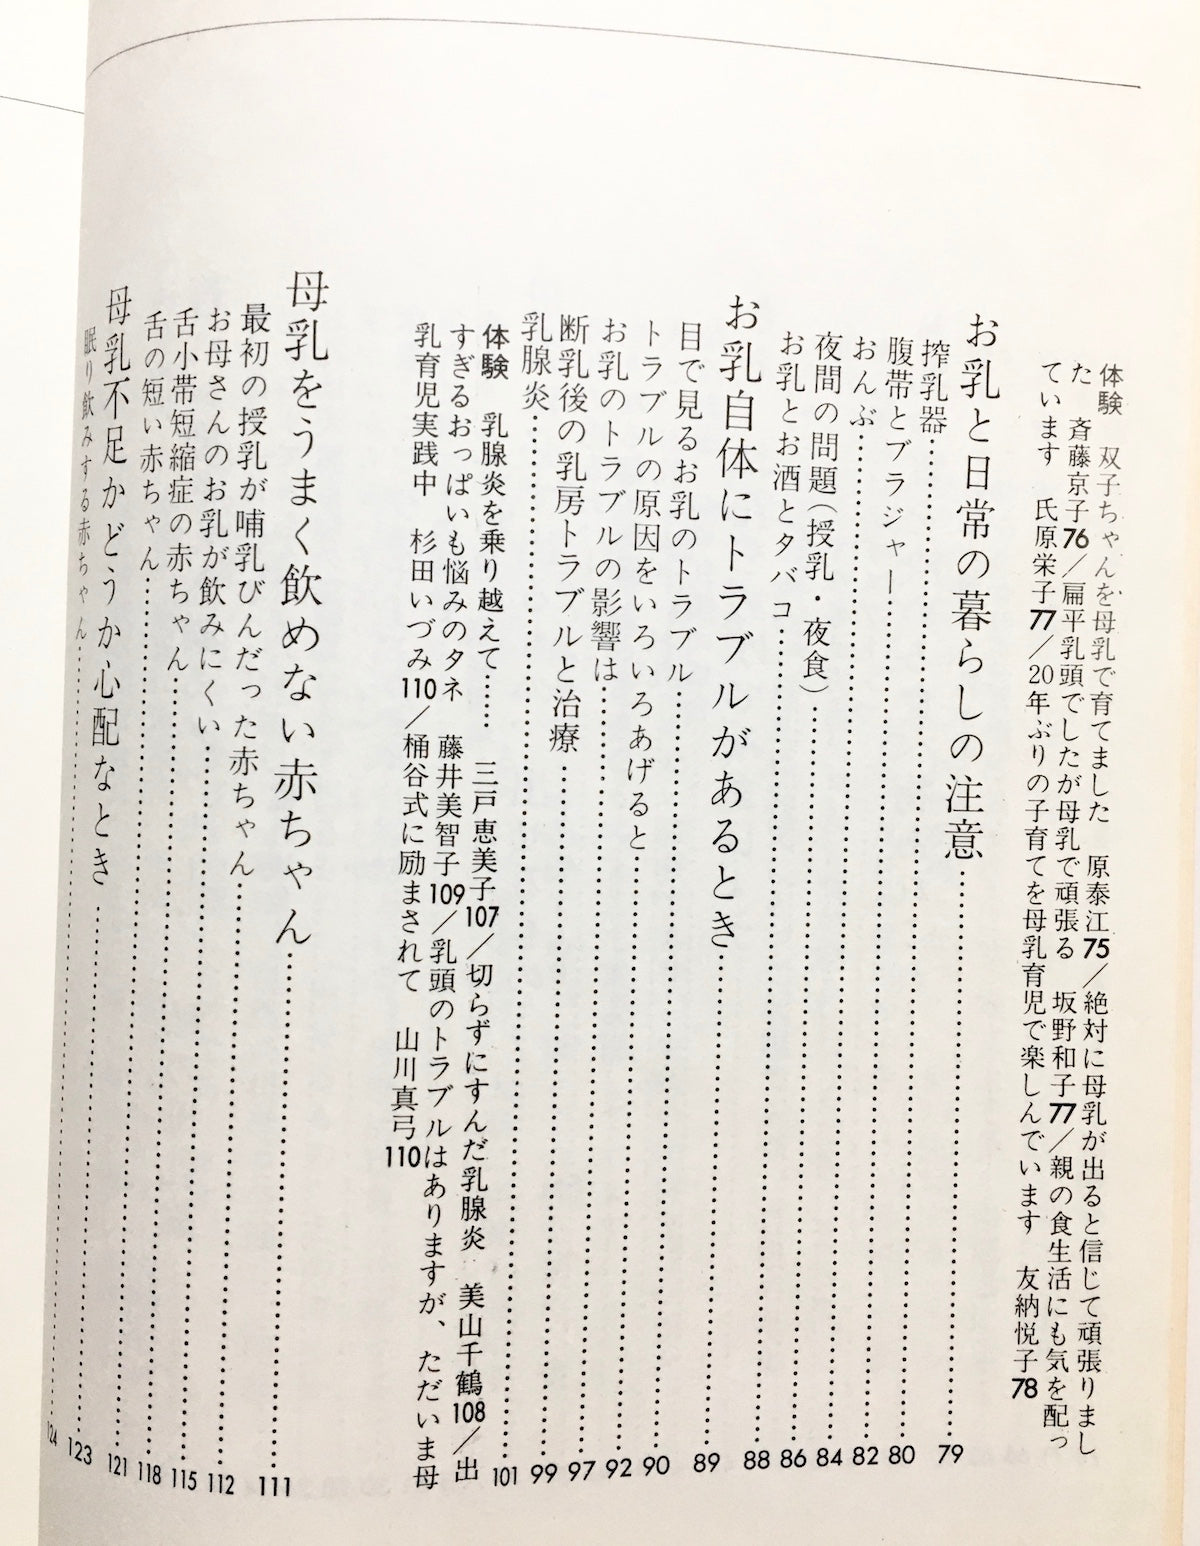 体験　双子ちゃんを母乳で育てました　原泰江75／絶対に母乳が出ると信じて頑張りまし
た　斉藤京子76／扁平乳頭でしたが母乳で頑張る　坂野和子77／親の食生活にも気を配っ
ています　氏原栄子77／20年ぶりの子育てを母乳育児で楽しんでいます　友納悦子78
お乳と日常の暮らしの注意……79
搾乳器……80
腹帯とブラジャー……82
おんぶ……84
夜間の問題（授乳・夜食）……86
お乳とお酒とタバコ……88
お乳自体にトラブルがあるとき……89
目で見るお乳のトラブル……90
トラブルの原因をいろいろあげると……92
お乳のトラブルの影響は……97
断乳後の乳房トラブルと治療……99
乳腺炎……101
体験　乳腺炎を乗り越えて……　三戸恵美子107／切らずにすんだ乳腺炎　美山千鶴108／出
すぎるおっぱいも悩みのタネ　藤井美智子109／乳頭のトラブルはありますが、ただいま母
乳育児実践中　杉田いづみ110／桶谷式に励まされて　山川真弓110
母乳をうまく飲めない赤ちゃん……111
最初の授乳が哺乳びんだった赤ちゃん……112
お母さんのお乳が飲みにくい……115
舌小帯短縮症の赤ちゃん……118
舌の短い赤ちゃん……121
母乳不足かどうか心配なとき……123
眠り飲みする赤ちゃん……124